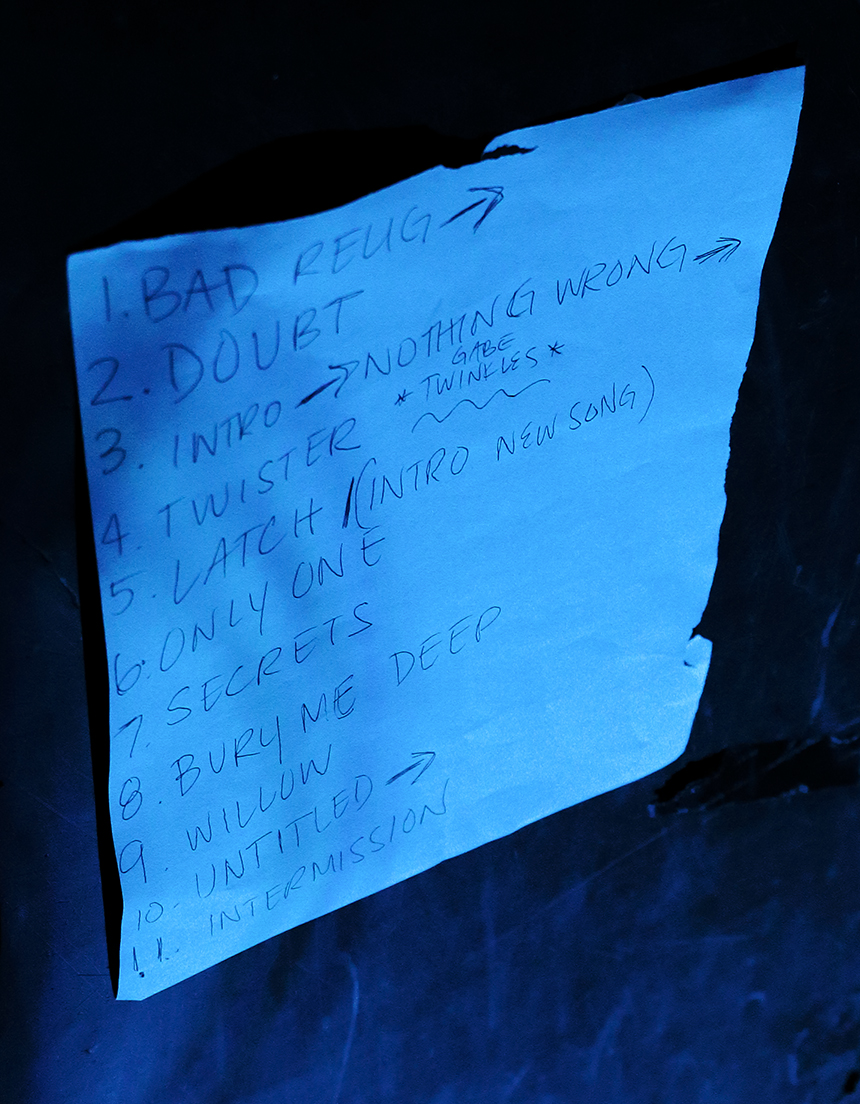 1. BAD RELIG →
2. DOUBT
3. INTRO → NOTHING WRONG →
4. TWISTER * GABE TWINKLES *
5. LATCH / (INTRO NEW SONG)
6. ONLY ONE
7. SECRETS
8. BURY ME DEEP
9. WILLOW
10. UNTITLED →
11. INTERMISSION